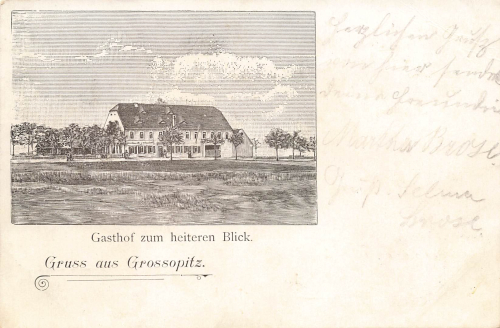 Gasthof zum heiteren Blick.
Gruss aus Grossopitz.
Herzlichen Gruß
sendet
deine Freundin
Martha Brose
Gruß. Selma
Brose